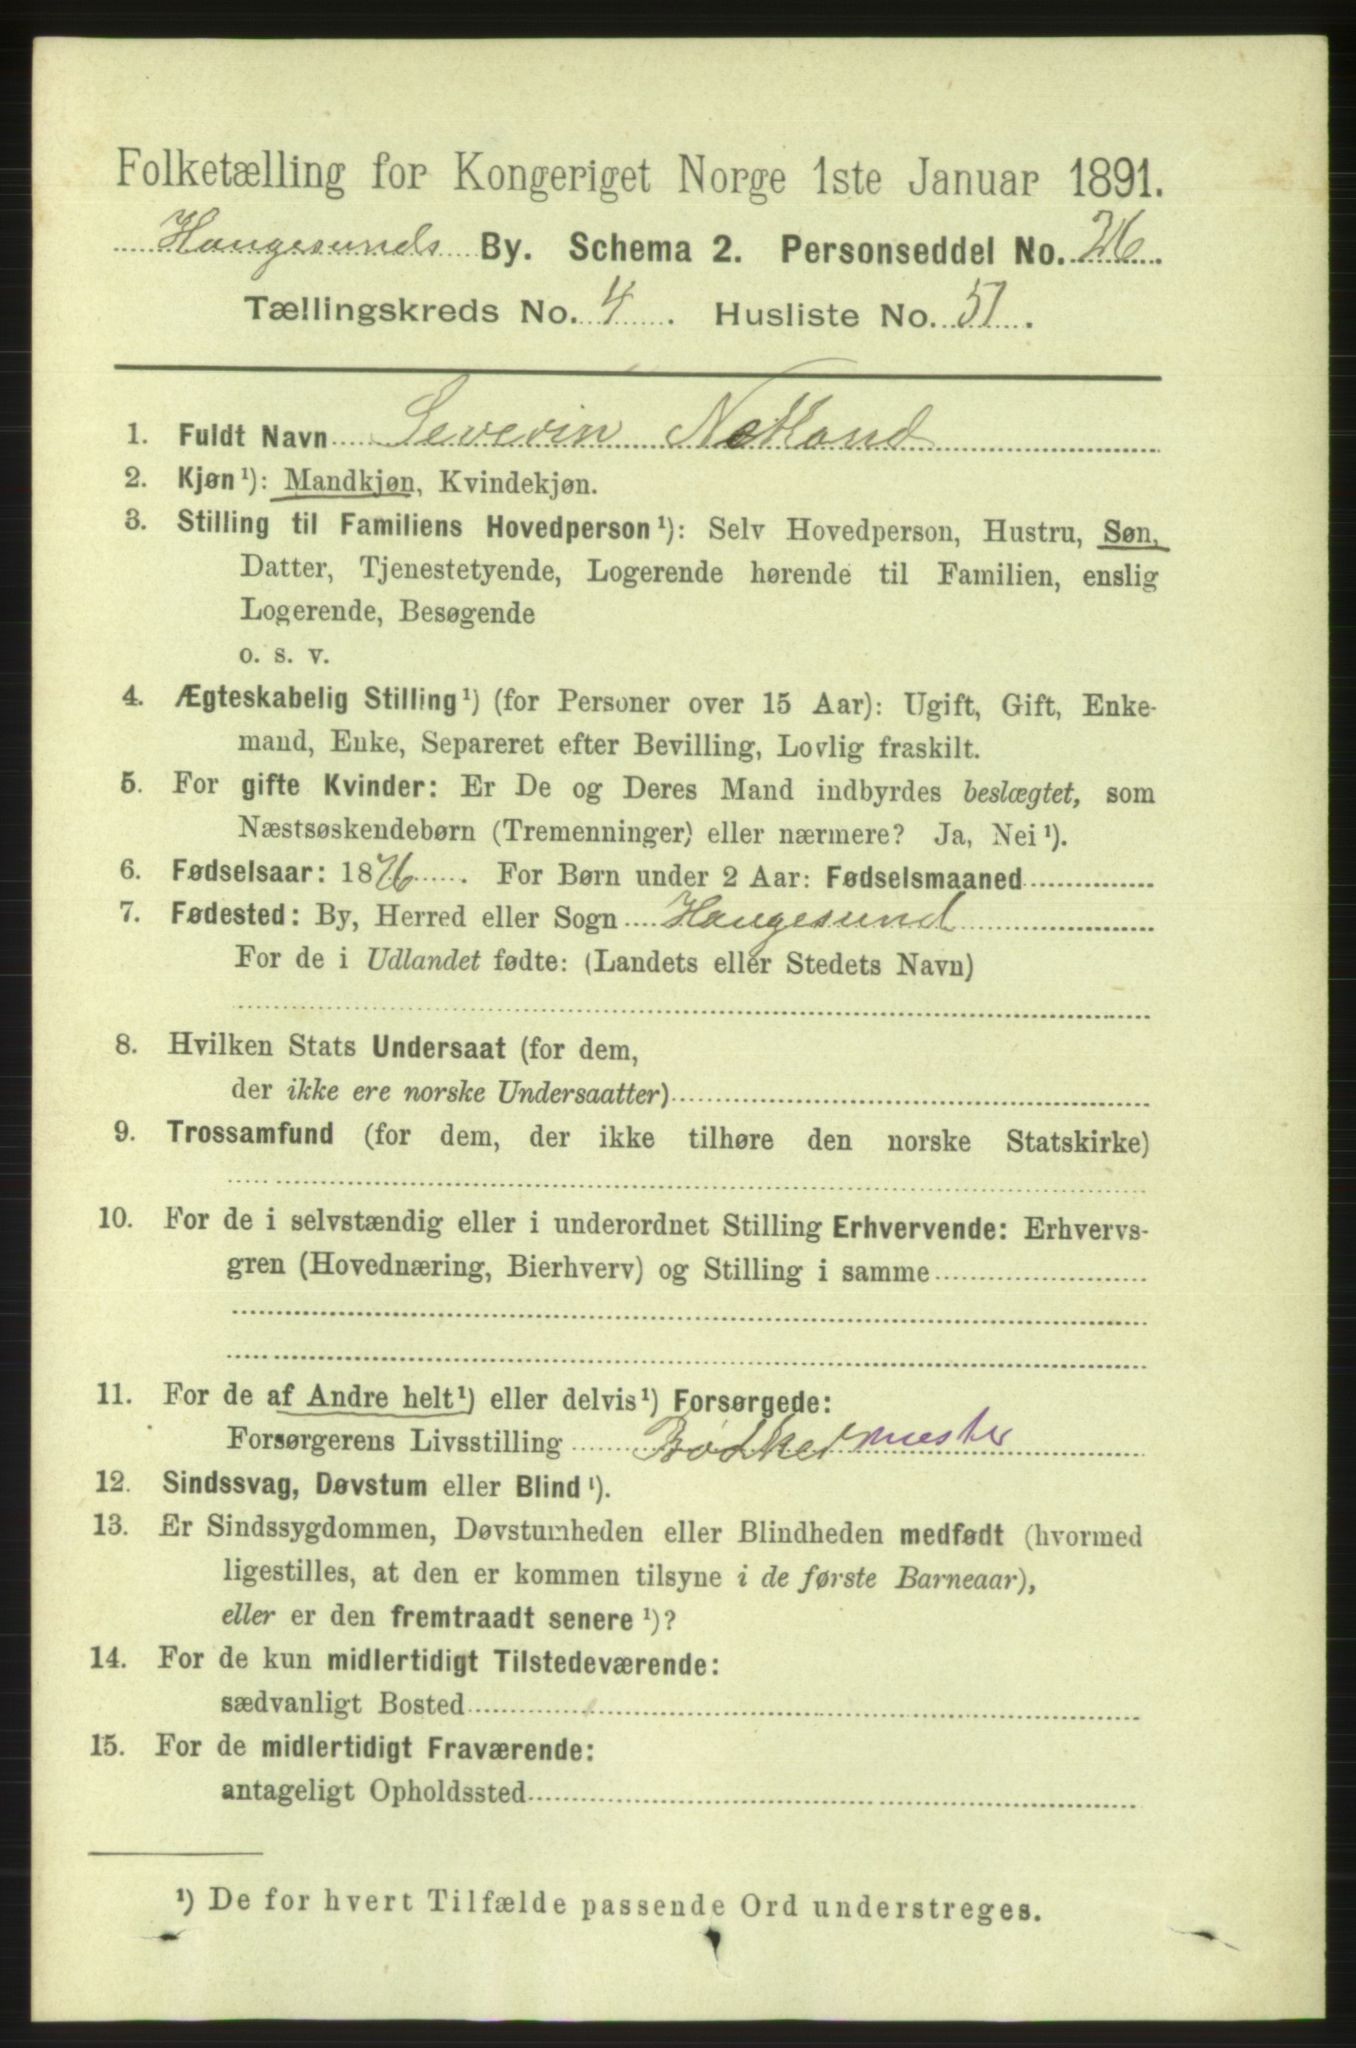 Folketælling for Kongeriget Norge 1ste Januar 1891.
Haugesunds By. Schema 2. Personseddel No. 26.
Tællingskreds No. 4. Husliste No. 51.
1. Fuldt Navn Severin Netland
2. Kjøn¹): Mandkjøn, Kvindekjøn.
3. Stilling til Familiens Hovedperson¹): Selv Hovedperson, Hustru, Søn,
Datter, Tjenestetyende, Logerende hørende til Familien, enslig
Logerende, Besøgende
o. s. v.
4. Ægteskabelig Stilling¹) (for Personer over 15 Aar): Ugift, Gift, Enke-
mand, Enke, Separeret efter Bevilling, Lovlig fraskilt.
5. For gifte Kvinder: Er De og Deres Mand indbyrdes beslægtet, som
Næstsøskendebørn (Tremenninger) eller nærmere? Ja, Nei¹).
6. Fødselsaar: 1876. For Børn under 2 Aar: Fødselsmaaned
7. Fødested: By, Herred eller Sogn Haugesund
For de i Udlandet fødte: (Landets eller Stedets Navn)
8. Hvilken Stats Undersaat (for dem,
der ikke ere norske Undersaatter)
9. Trossamfund (for dem, der ikke tilhøre den norske Statskirke)
10. For de i selvstændig eller i underordnet Stilling Erhvervende: Erhvervs-
gren (Hovednæring, Bierhverv) og Stilling i samme
11. For de af Andre helt¹) eller delvis¹) Forsørgede:
Forsørgerens Livsstilling Bødkermester
12. Sindssvag, Døvstum eller Blind¹).
13. Er Sindssygdommen, Døvstumheden eller Blindheden medfødt (hvormed
ligestilles, at den er kommen tilsyne i de første Barneaar),
eller er den fremtraadt senere¹)?
14. For de kun midlertidigt Tilstedeværende:
sædvanligt Bosted
15. For de midlertidigt Fraværende:
antageligt Opholdssted
¹) De for hvert Tilfælde passende Ord understreges.